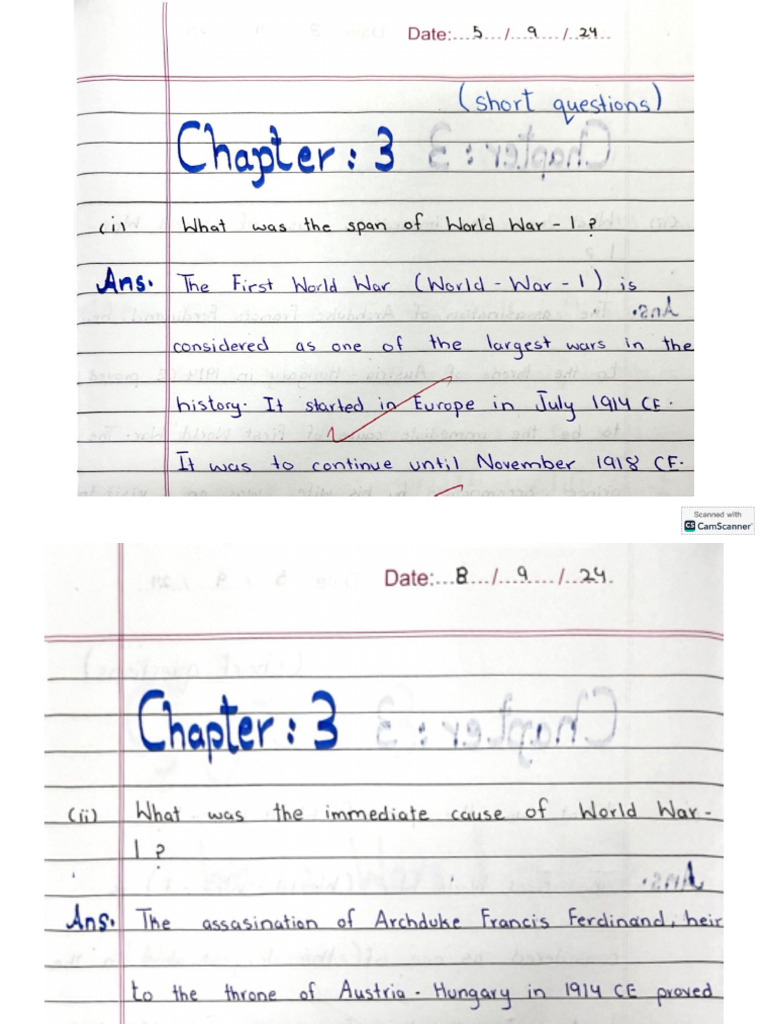 Date:...5.../...9.../..24..
(short questions)
Chapter : 3
(i) What was the span of World War - 1 ?
Ans. The First World War (World - War - 1) is
considered as one of the largest wars in the
history. It started in Europe in July 1914 CE.
It was to continue until November 1918 CE.
Scanned with
CS CamScanner
Date:...8.../...9..../..24.
Chapter : 3
(ii) What was the immediate cause of World War -
1 ?
Ans. The assasination of Archduke Francis Ferdinand, heir
to the throne of Austria - Hungary in 1914 CE proved